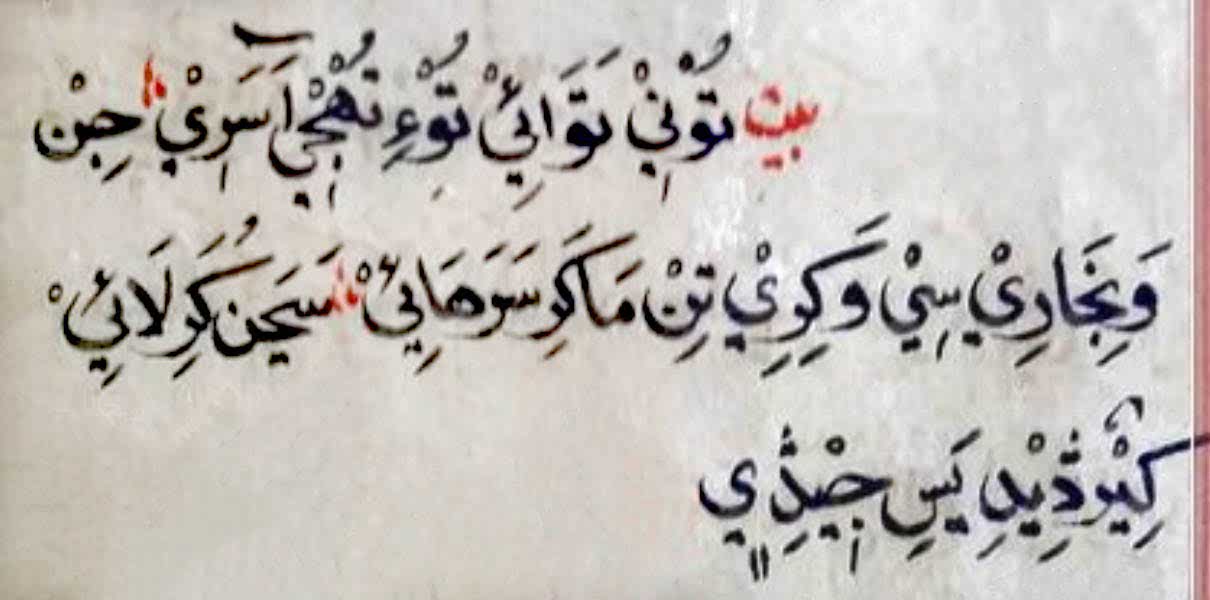 بيت تُوْنِيْ تَوَائِيْ تُوْءِ تُهْجِيْ آسَرِيْ حِبْن
وَنِجَارِيْ سِيْ وَكَوِيْ تِنِ مَاكَرِ سَرَهَائِيْ سَحِن كَرِ لَائِيْ
كِيُوْ ڎِيْدِ يَسِ جِيْڎِي